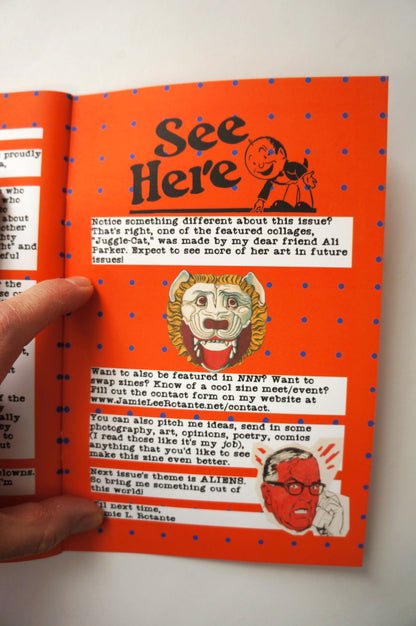 proudly
who
who
to
about
other
ghty
ht" and
eful
of the
ally
by
to
out
clowns.
I'm
See
Here
Notice something different about this issue?
That's right, one of the featured collages,
"Juggle-Cat," was made by my dear friend Ali
Parker. Expect to see more of her art in future
issues!
Want to also be featured in NNN? Want to
swap zines? Know of a cool zine meet/event?
Fill out the contact form on my website at
www.JamieLeeRotante.net/contact.
You can also pitch me ideas, send in some
photography, art, opinions, poetry, comics
(I read those like it's my job),
anything that you'd like to see
make this zine even better.
Next issue's theme is ALIENS.
So bring me something out of
this world!
'Til next time,
Jamie L. Rotante